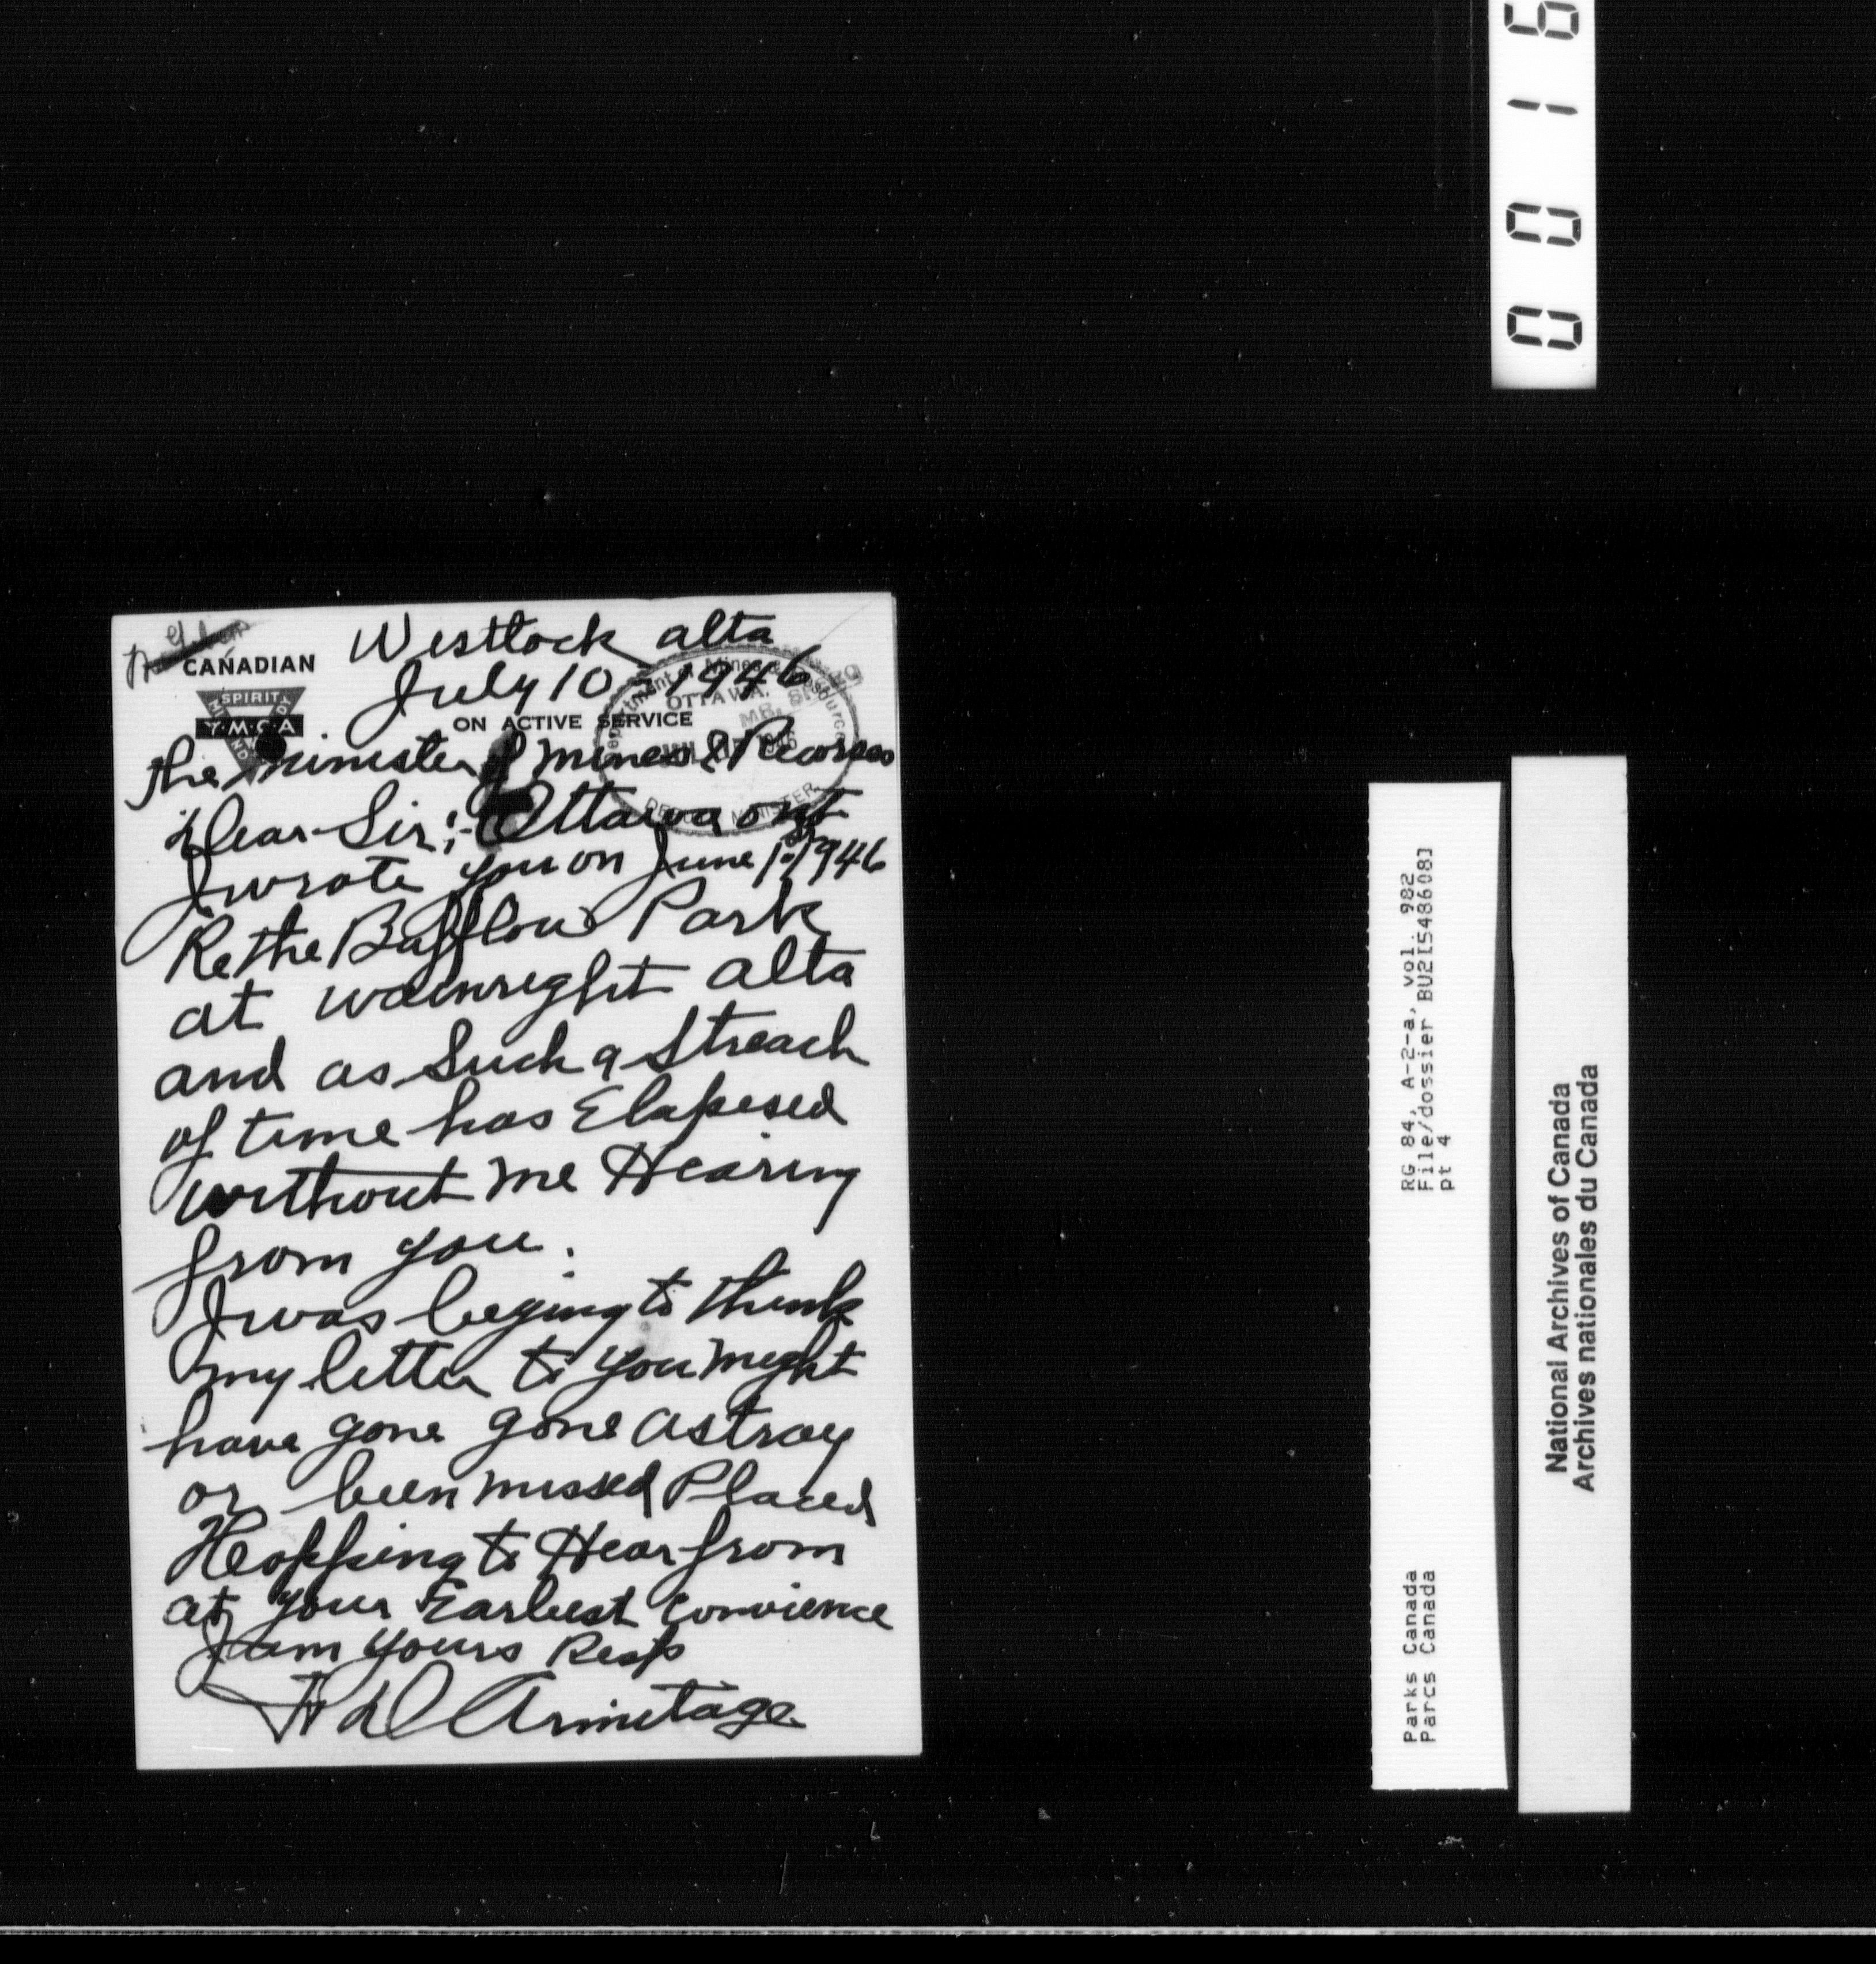 0016
CANADIAN
SPIRIT
MIND
BODY
Y·M·C·A
ON ACTIVE SERVICE
Department of Mines & Resources
OTTAWA.
1946
DEPUTY MINISTER
Westlock alta
July 10 - 1946
the Minister of Mines & Recorses
Dear Sir;- Ottawa ont
I wrote you on June 1st 1946
Re the Bafflow Park
at wainright alta
and as Such a Streach
of time has Elapesed
without me Hearing
from you.
I was beging to think
my letter to you might
have gone gone astray
or been missed Placed
Heopping to Hear from
at your Earliest Convience
I am yours Resp
Armitage
RG 84, A-2-a, vol. 982
File/dossier BU2[5486608]
pt 4
Parks Canada
Parcs Canada
National Archives of Canada
Archives nationales du Canada